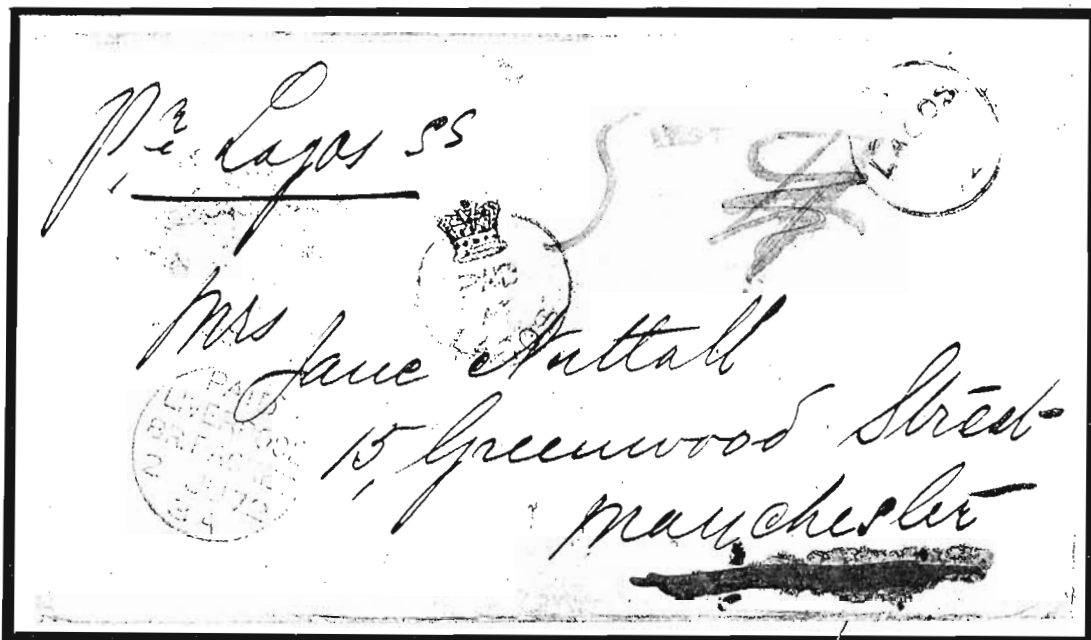 pr Lagos SS
LAGOS
PAID
LAGOS
Mrs
Jane Nuttall
15, Greenwood Street
Manchester
PAID
LIVERPOOL
BR. PACKET
2 JU 72